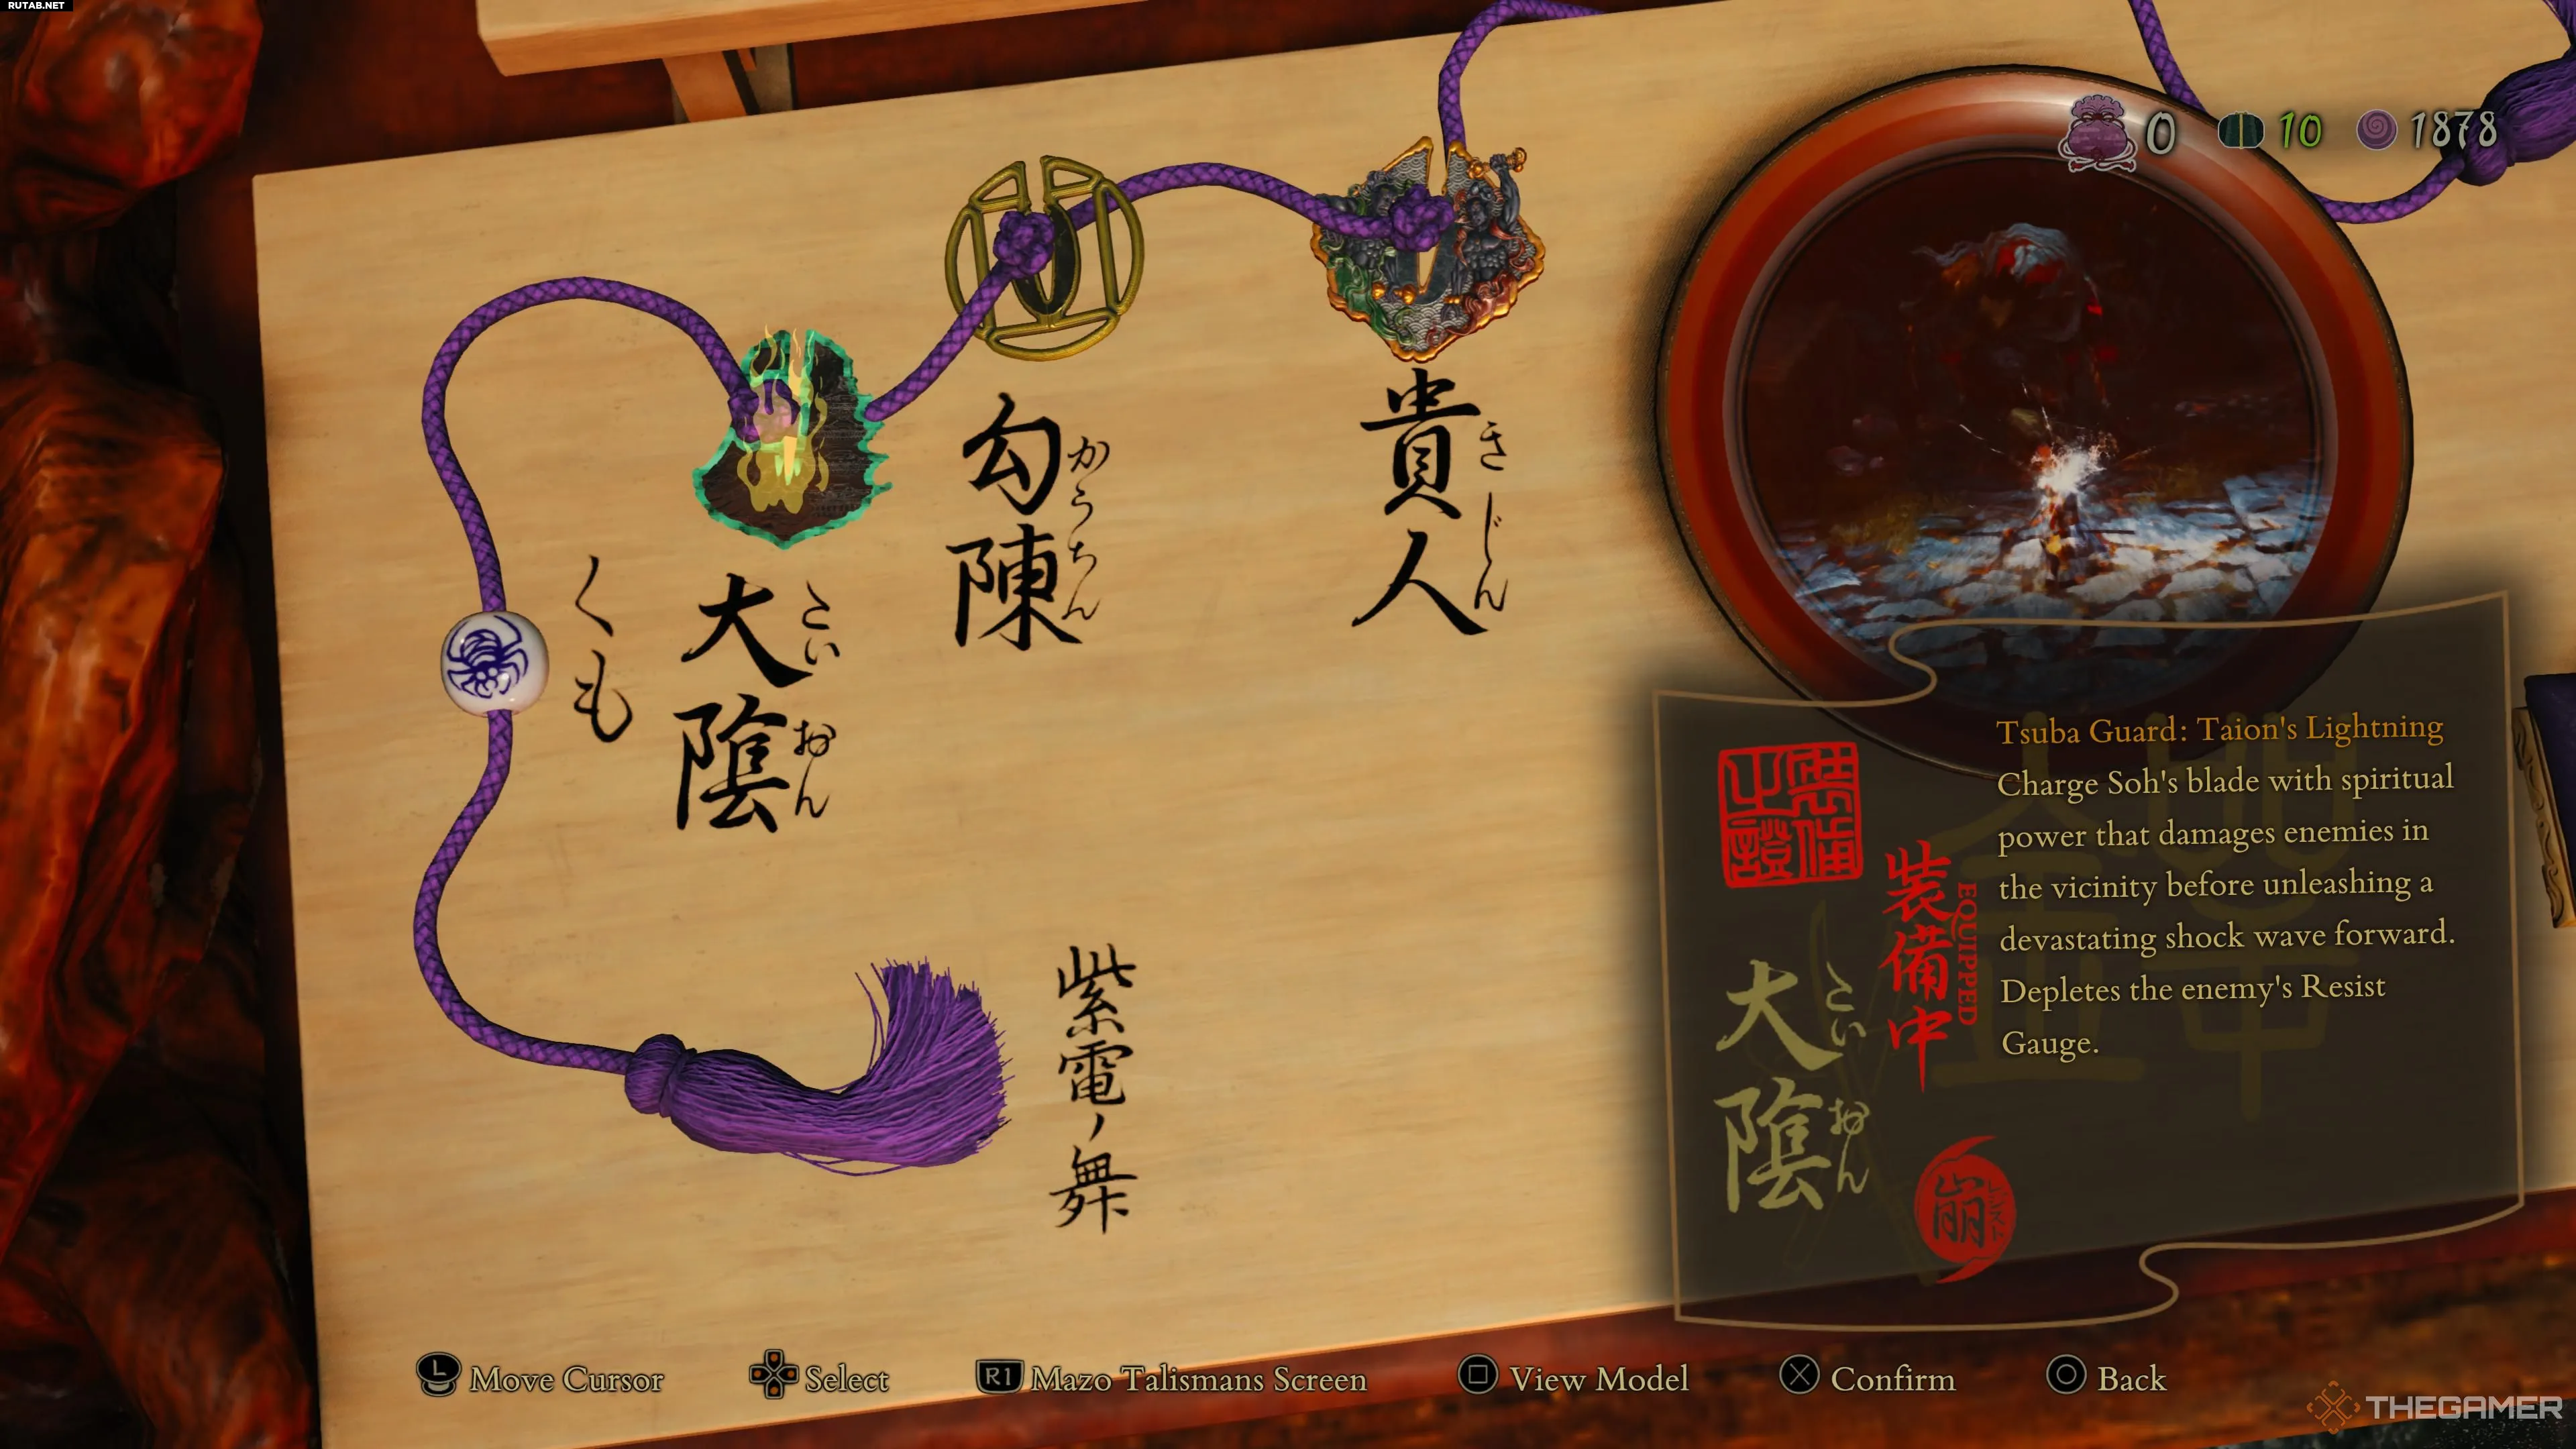 RUTAB.NET
0
10
1878
貴人
きじん
勾陳
かうちん
大陰
たいおん
くも
紫電ノ舞
Tsuba Guard: Taion's Lightning
Charge Soh's blade with spiritual
power that damages enemies in
the vicinity before unleashing a
devastating shock wave forward.
Depletes the enemy's Resist
Gauge.
装備之證
装備中
EQUIPPED
大陰
たいおん
崩
L Move Cursor
Select
R1 Mazo Talismans Screen
View Model
Confirm
Back
THEGAMER